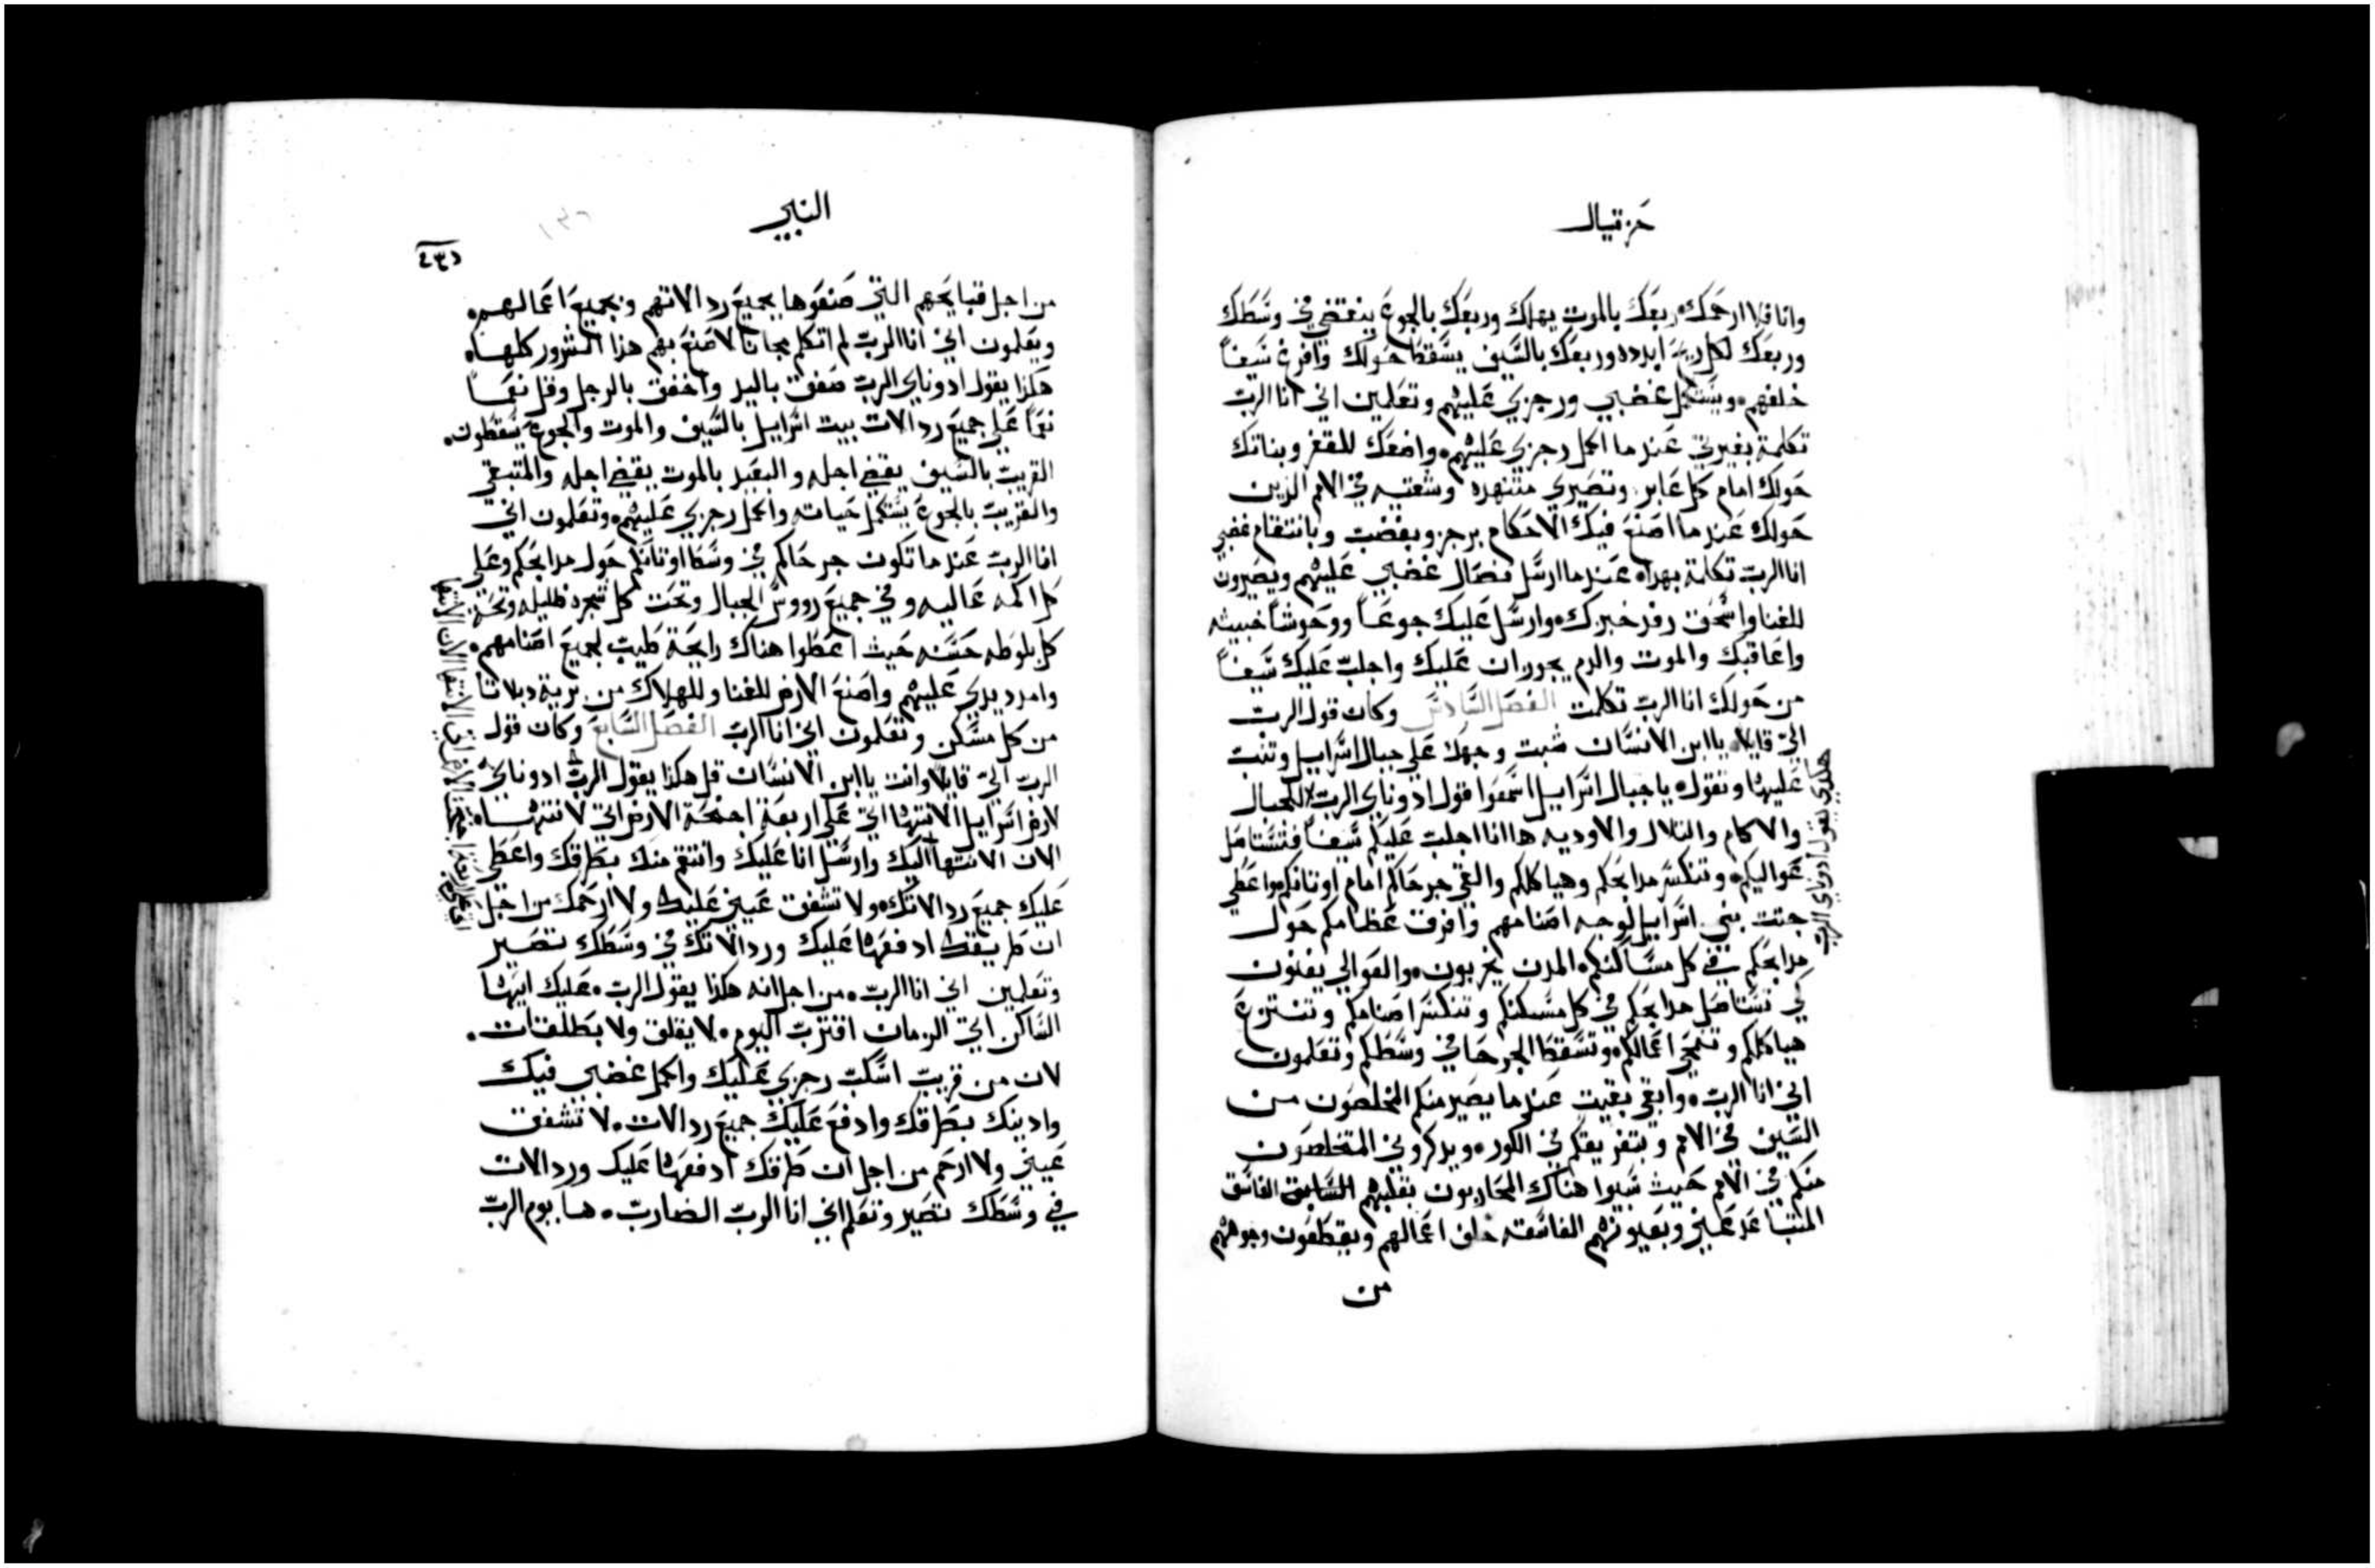 حزقيال
وانا فلا ارحمك ربعك بالموت يهلك وربعك بالجوع ينقضي في وسطك
وربعك لكل ريح ابدده وربعك بالسيف يسقط حولك وافرغ سيفاً
خلفهم ويستكمل غضبي ورجزي عليهم وتعلمين اني انا الرب
تكلمت بغيرتي عندما اكمل رجزي عليهم واضعك للقفر وبناتك
حولك امام كل عابر وتصيري متنهده وشقيه في الامم الذين
حولك عندما اصنع فيك الاحكام برجز وبغضب وبانتقام غضبي
انا الرب تكلمت بهداه عندما ارسل نصال غضبي عليهم ويصيرون
للفنا واسحق رفد خبزك وارسل عليك جوعاً ووحوشاً خبيثه
واعاقبك والموت والدم يجوزان عليك واجلب عليك سيفاً
من حولك انا الرب تكلمت الفصل السادس وكان قول الرب
اليّ قايلا يا ابن الانسان ثبت وجهك علي جبال اسراييل وتنبت
عليها وتقول يا جبال اسراييل اسمعوا قول ادوناي الرب للجبال
والاكام والتلال والاوديه ها انا اجلب عليكم سيفاً فتستاصل
عواليكم وتنكسر مدابحكم وهياكلكم والقي جرحاكم امام اوتانكم واعطي
جثت بني اسراييل لوجه اصنامهم وافرق عظامكم حول
مدابحكم في كل مساكنكم المدن يخربون والعوالي يفنون
لكي تستاصل مدابحكم في كل مسكنكم وتنكسر اصنامكم وتنتزع
هياكلكم وتمحي اعمالكم وتسقط الجرحا في وسطكم وتعلمون
اني انا الرب وابقي بقيت عندما يصير منكم المخلصون من
السيف في الامم وبتفريقكم في الكور ويدكروني المتخلصون
منكم في الامم حيث سبوا هناك المحاربون بقلبهم الفاسق
المتباعد عني وبعيونهم الفاسقه خلف اعمالهم ويقطعون وجوههم
من
هكدي يقول ادوناي الرب
النبي
من اجل قبايحهم التي صنعوها بجميع ردالاتهم وبجميع اعمالهم
ويعلمون اني انا الرب لم اتكلم مجاناً لاصنع بهم هذا الشرور كلها
هكدا يقول ادوناي الرب صفق باليد واخفق بالرجل وقل نعماً
نعماً علي جميع ردالات بيت اسراييل بالسيف والموت والجوع يسقطون
القريب بالسيف يقضي اجله والبعيد بالموت يقضي اجله والمتبقي
والقريب بالجوع يستكمل حياته واكمل رجزي عليهم وتعلمون اني
انا الرب عندما تكون جرحاكم في وسط اوتانكم حول مدابحكم وعلي
كل اكمه عاليه وفي جميع رووس الجبال وتحت كل شجره ظليله وتحت
كل بلوطه حسنه حيث اعطوا هناك رايحة طيب لجميع اصنامهم
وامدد يدي عليهم واصنع الارض للفنا وللهلاك من برية دبلاتا
من كل مسكن وتعلمون اني انا الرب الفصل السابع وكان قول
الرب اليّ قايلا وانت يا ابن الانسان قل هكذا يقول الرب ادوناي
لارض اسراييل الانتها اتي علي اربعة اجنحة الارض اتي لانتها
الان الانتها اليك وارسل انا عليك وانتقم منك بطرقك واعطي
عليك جميع ردالاتك ولا تشفق عيني عليك ولا ارحمك من اجل
ان طريقك ادفعها عليك وردالاتك في وسطك تصير
وتعلمين اني انا الرب من اجل انه هكذا يقول الرب عليك ايها
الساكن اتي الزمان اقترب اليوم لا بقلق ولا بطلقات
لان من قريب اسكب رجزي عليك واكمل غضبي فيك
وادينك بطرقك وادفع عليك جميع ردالات لا تشفق
عيني ولا ارحم من اجل ان طرقك ادفعها عليك وردالات
في وسطك تصير وتعلم اني انا الرب الضارب ها يوم الرب